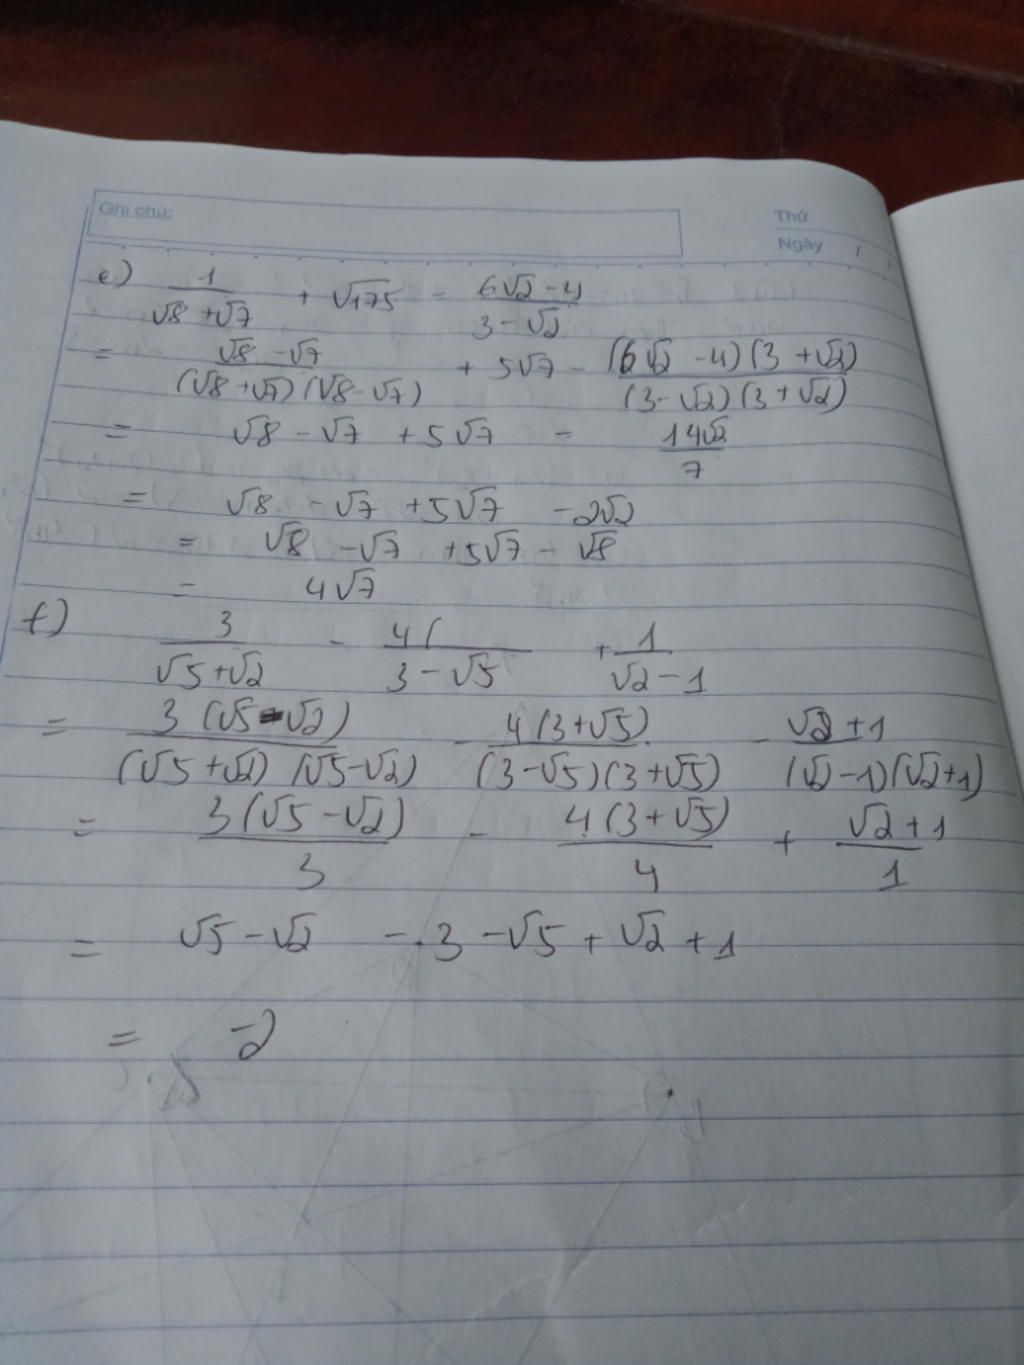 Ghi chú:
Thứ
Ngày / /
e) 1/(√8 + √7) + √175 - (6√2 - 4)/(3 - √2)
= (√8 - √7)/((√8 + √7)(√8 - √7)) + 5√7 - ((6√2 - 4)(3 + √2))/((3 - √2)(3 + √2))
= √8 - √7 + 5√7 - 14√2/7
= √8 - √7 + 5√7 - 2√2
= √8 - √7 + 5√7 - √8
= 4√7
f) 3/(√5 + √2) - 4(/(3 - √5) + 1/(√2 - 1)
= 3(√5 - √2)/((√5 + √2)(√5 - √2)) - 4(3 + √5)/((3 - √5)(3 + √5)) - (√2 + 1)/((√2 - 1)(√2 + 1))
= 3(√5 - √2)/3 - 4(3 + √5)/4 + (√2 + 1)/1
= √5 - √2 - 3 - √5 + √2 + 1
= -2